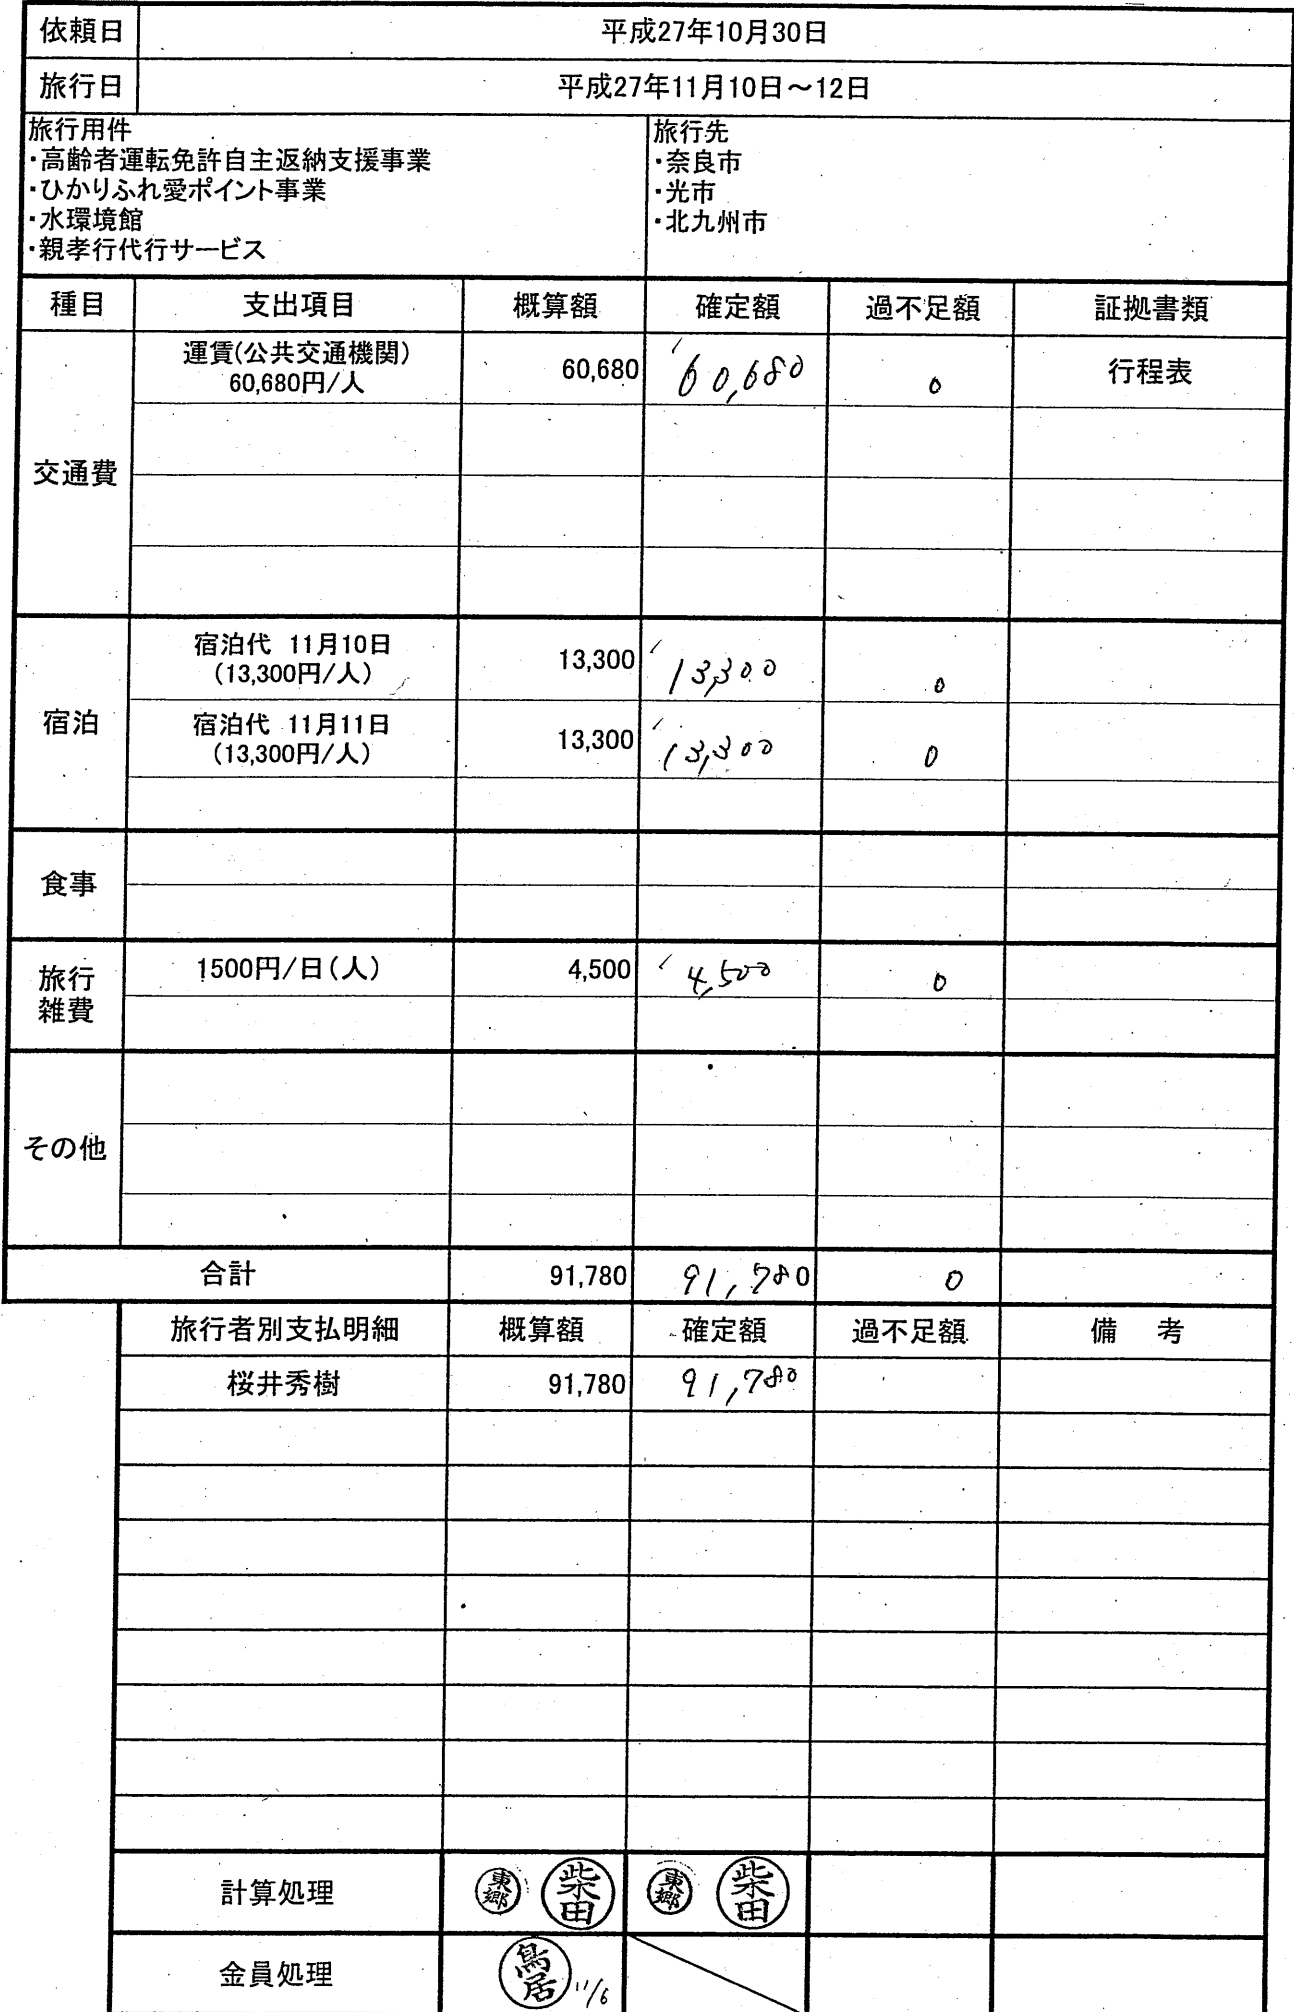 依頼日 平成27年10月30日
旅行日 平成27年11月10日～12日
旅行用件
・高齢者運転免許自主返納支援事業
・ひかりふれ愛ポイント事業
・水環境館
・親孝行代行サービス
旅行先
・奈良市
・光市
・北九州市
種目 支出項目 概算額 確定額 過不足額 証拠書類
交通費
運賃(公共交通機関)
60,680円/人
60,680 60,680 0 行程表
宿泊
宿泊代 11月10日
(13,300円/人)
13,300 13,300 0
宿泊代 11月11日
(13,300円/人)
13,300 13,300 0
食事
旅行
雑費
1500円/日(人) 4,500 4,500 0
その他
合計 91,780 91,780 0
旅行者別支払明細 概算額 確定額 過不足額 備 考
桜井秀樹 91,780 91,780
計算処理 東郷 柴田 東郷 柴田
金員処理 鳥居 11/6